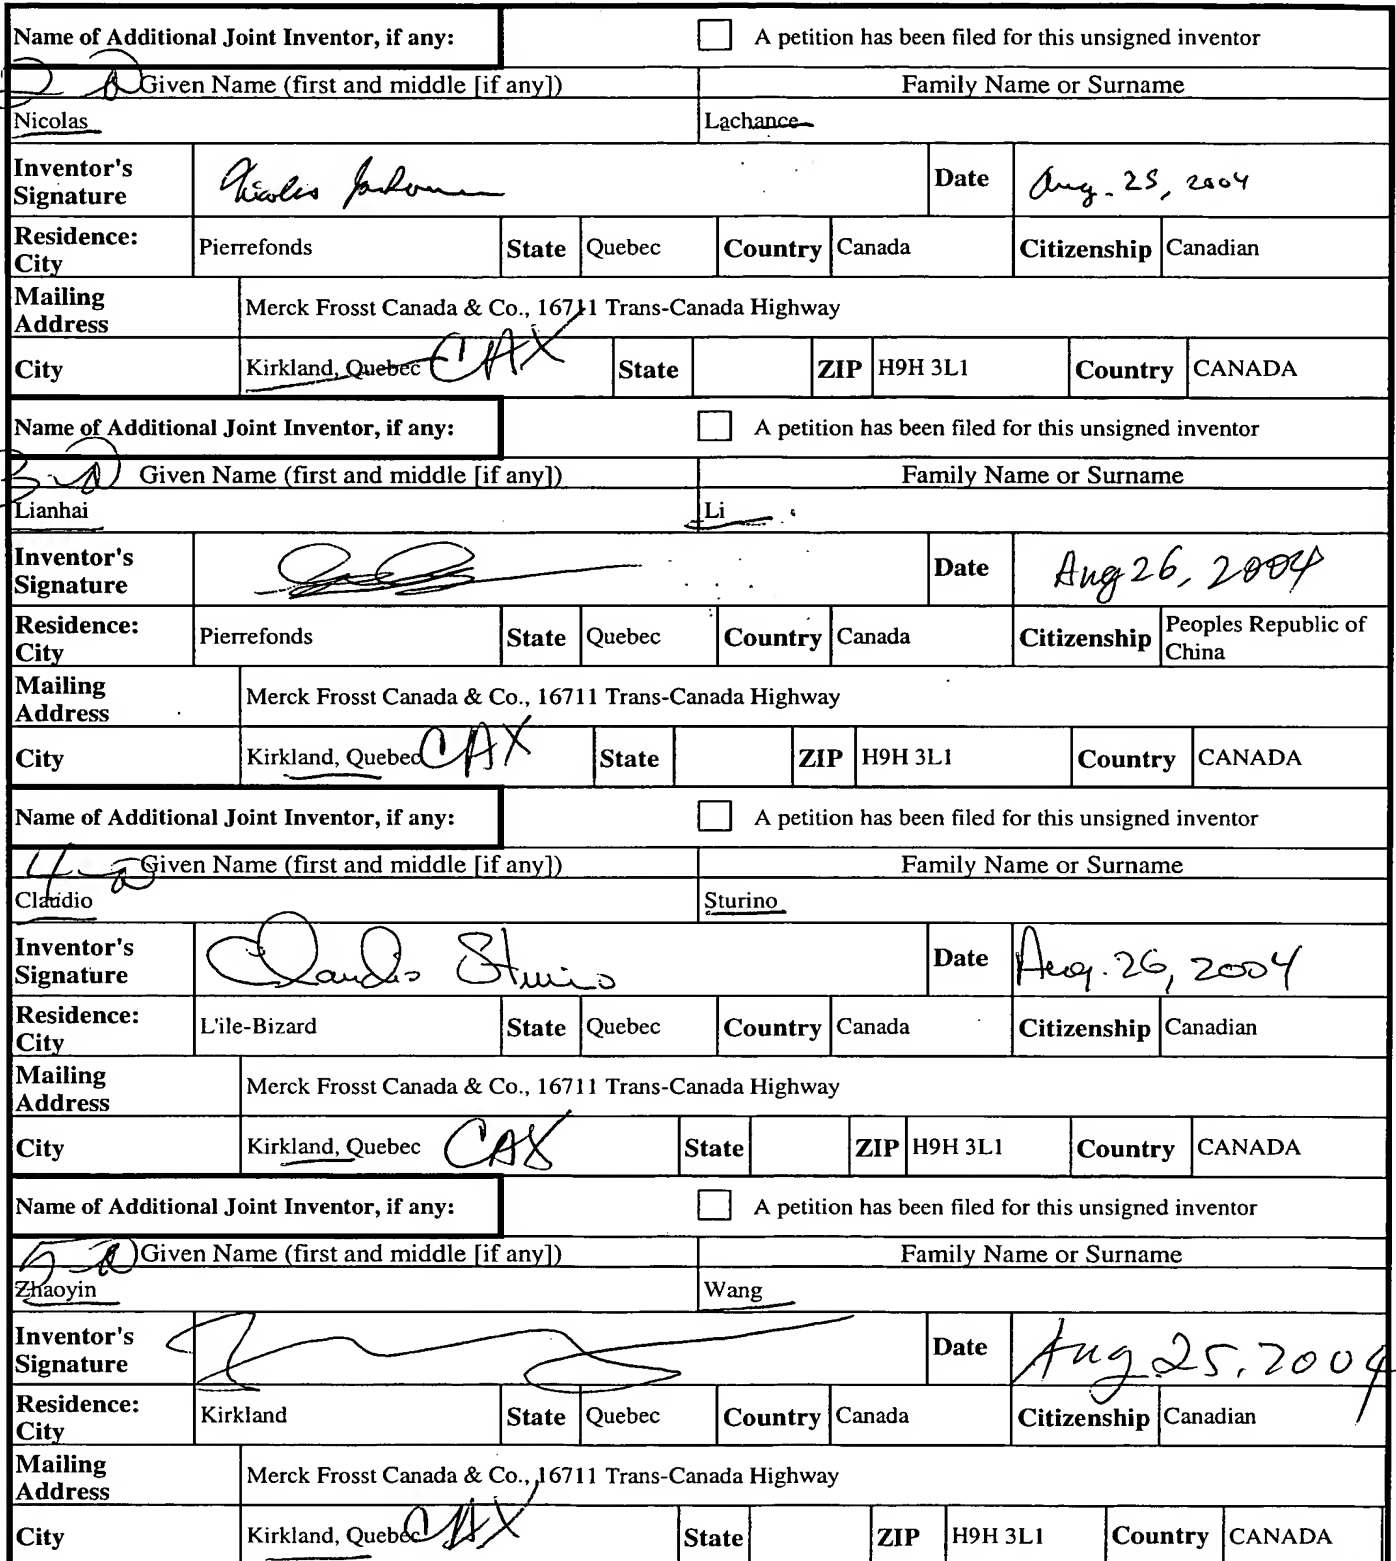 Name of Additional Joint Inventor, if any: A petition has been filed for this unsigned inventor
Given Name (first and middle [if any]) Family Name or Surname
Nicolas Lachance
Inventor's Signature Date Aug. 25, 2004
Residence: City Pierrefonds State Quebec Country Canada Citizenship Canadian
Mailing Address Merck Frosst Canada & Co., 16711 Trans-Canada Highway
City Kirkland, Quebec CAX State ZIP H9H 3L1 Country CANADA
Name of Additional Joint Inventor, if any: A petition has been filed for this unsigned inventor
3- Given Name (first and middle [if any]) Family Name or Surname
Lianhai Li
Inventor's Signature Date Aug 26, 2004
Residence: City Pierrefonds State Quebec Country Canada Citizenship Peoples Republic of China
Mailing Address Merck Frosst Canada & Co., 16711 Trans-Canada Highway
City Kirkland, Quebec CAX State ZIP H9H 3L1 Country CANADA
Name of Additional Joint Inventor, if any: A petition has been filed for this unsigned inventor
4- Given Name (first and middle [if any]) Family Name or Surname
Claudio Sturino
Inventor's Signature Claudio Sturino Date Aug. 26, 2004
Residence: City L'ile-Bizard State Quebec Country Canada Citizenship Canadian
Mailing Address Merck Frosst Canada & Co., 16711 Trans-Canada Highway
City Kirkland, Quebec CAX State ZIP H9H 3L1 Country CANADA
Name of Additional Joint Inventor, if any: A petition has been filed for this unsigned inventor
5- Given Name (first and middle [if any]) Family Name or Surname
Zhaoyin Wang
Inventor's Signature Date Aug 25, 2004
Residence: City Kirkland State Quebec Country Canada Citizenship Canadian
Mailing Address Merck Frosst Canada & Co., 16711 Trans-Canada Highway
City Kirkland, Quebec CAX State ZIP H9H 3L1 Country CANADA